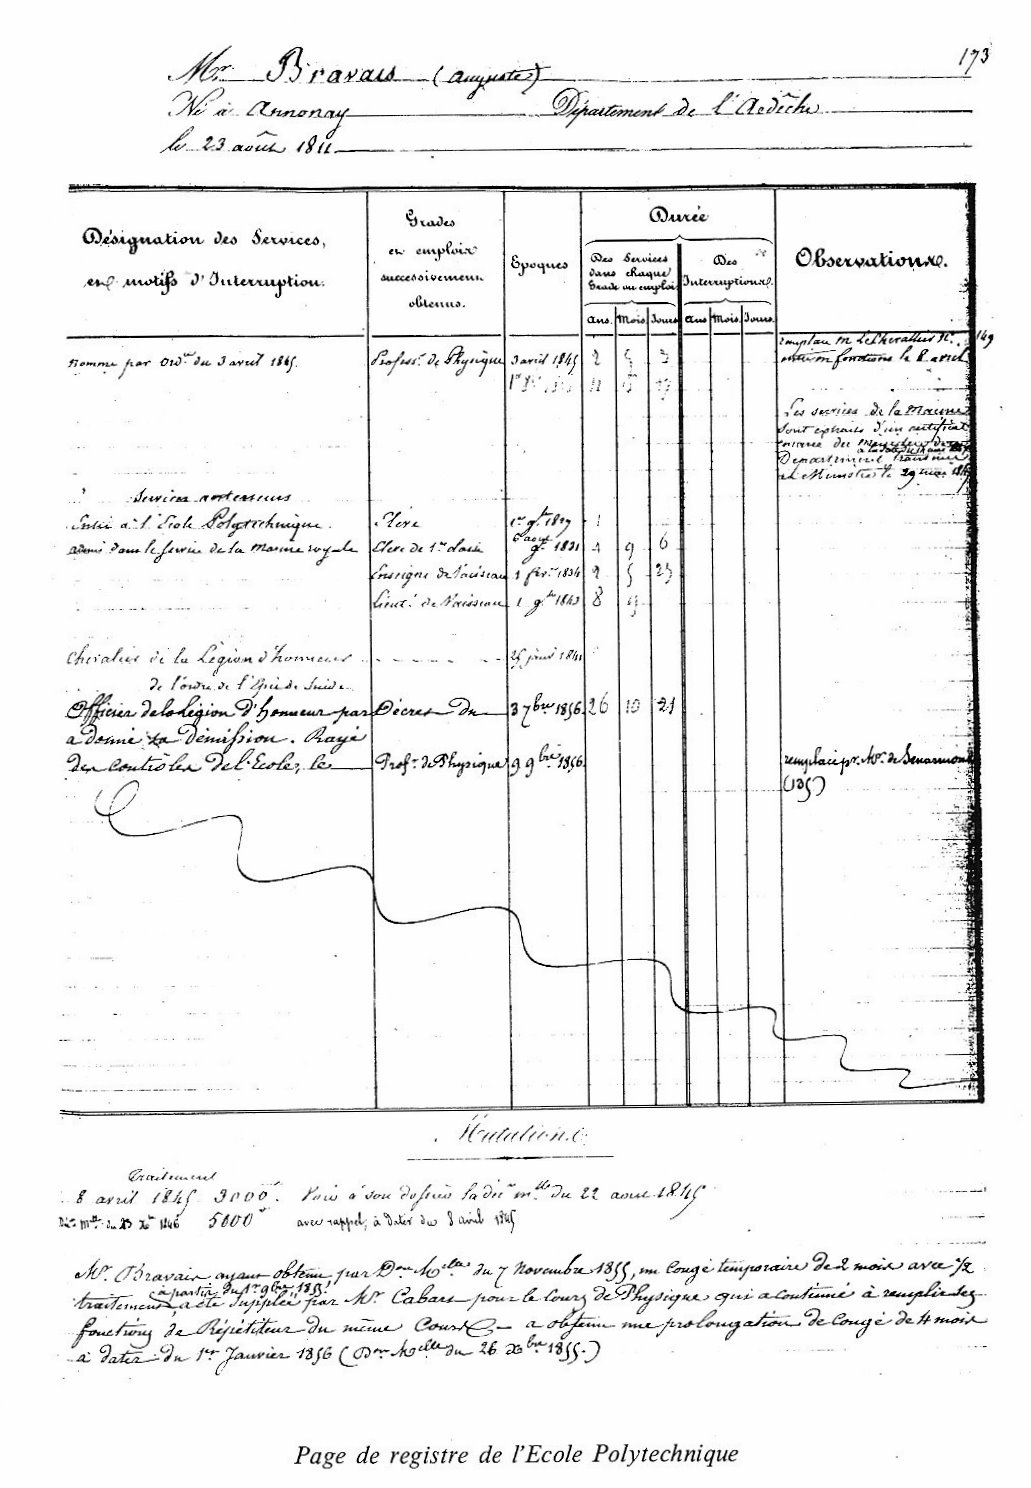 173
Mr. Bravais (Auguste)
Né à Annonay Département de l'Ardèche
le 23 août 1811
Désignation des Services, et motifs d'Interruption.
Grades et emplois successivement obtenus.
Epoques
Durée
Des Services dans chaque Grade ou emploi
Des Interruptions.
Observations.
Ans. Mois. Jours Ans Mois. Jours.
remplace M. LeChevallier N°. 149
entré en fonctions le 8 avril
nommé par Ordce du 3 avril 1845. Profess.r de Physique 3 avril 1845 2 5 3
Les services de la Marine
sont extraits d'un certificat
Département
le Ministre le 29 mars
Services antérieurs
Entré à l'Ecole Polytechnique. Elève 1er 9bre 1829 1
admis dans le service de la Marine royale Elève de 1re classe 6 août 1831 4 9 6
Enseigne de Vaisseau 1 fév. 1834 9 5 23
Lieut.t de Vaisseau 1 9bre 1843 8
Chevalier de la Légion d'honneur 25 janv. 1841
de l'ordre de l'Epée de Suède
Officier de la Légion d'honneur par Décret du 3 7bre 1856 26 10 21
a donné sa démission. Rayé
des contrôles de l'Ecole, le Prof.r de Physique 9 9bre 1856
remplacé pr. Mr. de Senarmont
(135)
Mutations
Traitement
8 avril 1845 3000f. Voir à son dossier la déc.n m.lle du 22 août 1845
Déc. Mlle du 23 Xbre 1846 5000f avec rappel, à dater du 8 avril 1845
Mr. Bravais ayant obtenu, par Don Mlle du 7 Novembre 1855, un congé temporaire de 2 mois avec 1/2
à partir du 1er 9bre 1855.
traitement, a été suppléé par Mr Cabart pour le Cours de Physique qui a continué à remplir les
fonctions de Répétiteur du même Cours - a obtenu une prolongation de congé de 4 mois
à dater du 1er Janvier 1856 (Don Mlle du 26 Xbre 1855.)
Page de registre de l'Ecole Polytechnique